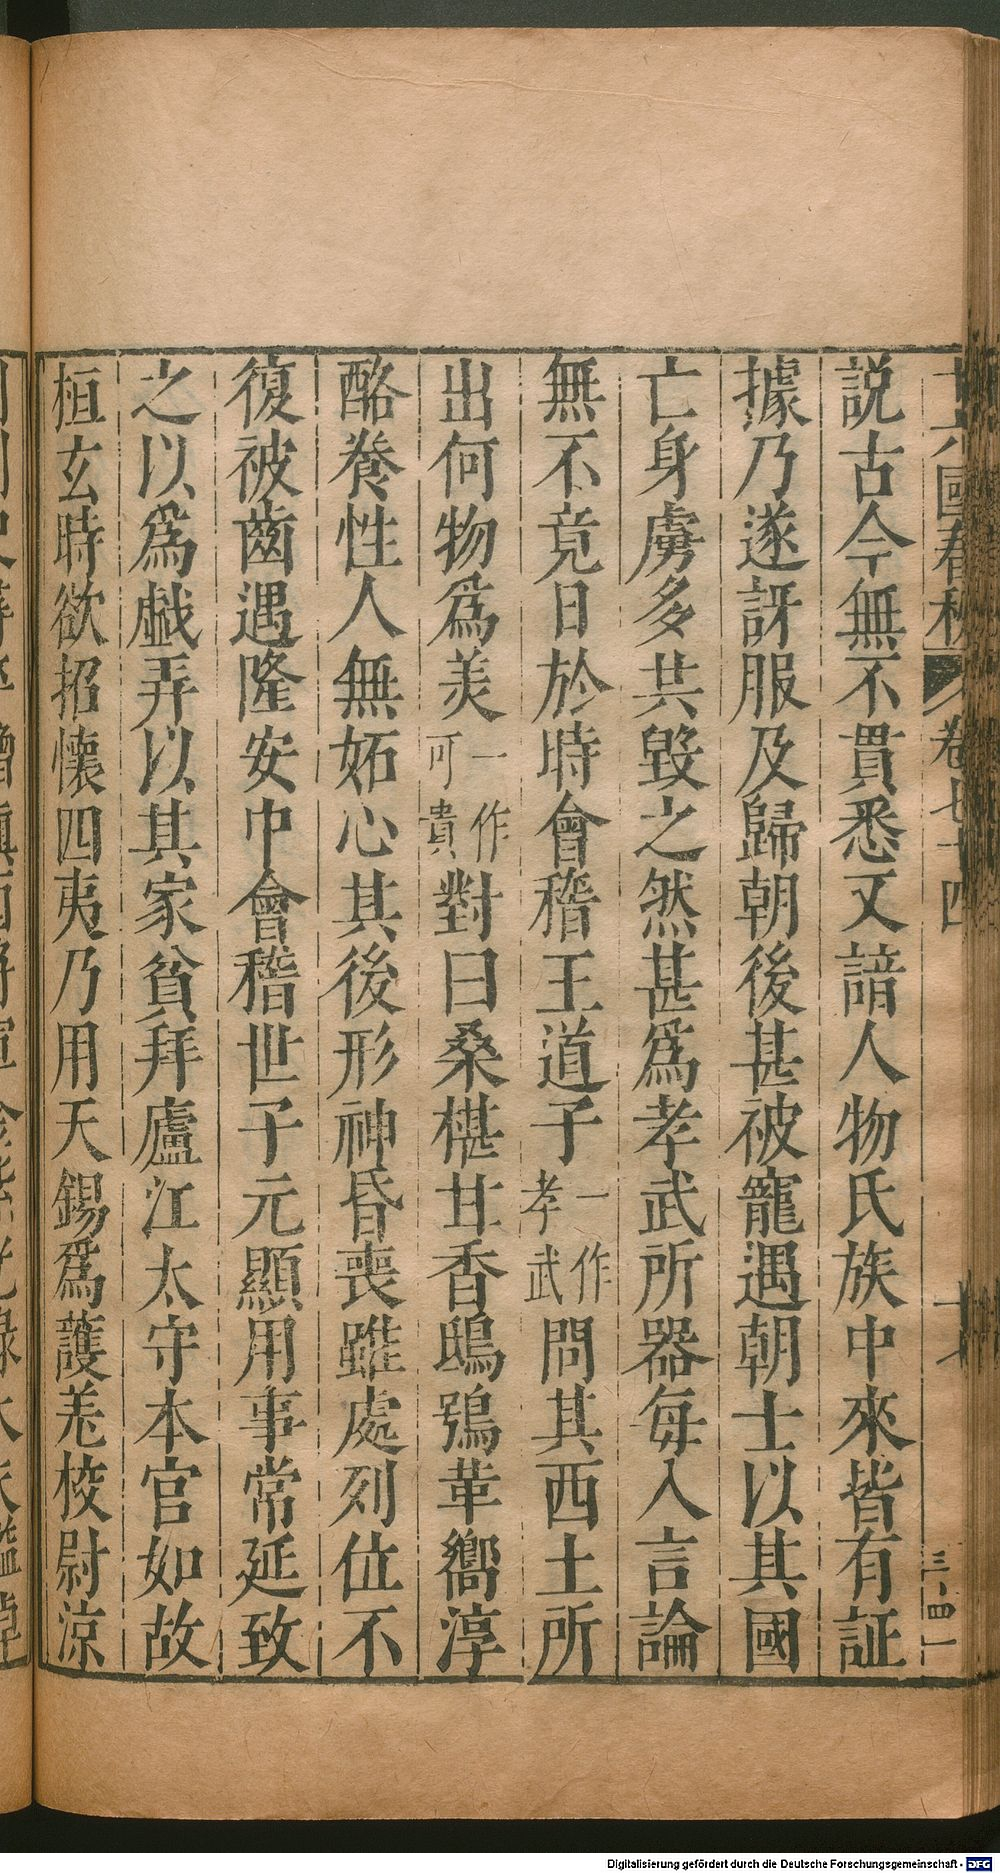 十六國春秋 卷七十四
説古今無不貫悉又諳人物氏族中來皆有証
據乃遂訝服及歸朝後甚被寵遇朝士以其國
亡身虜多共毀之然甚爲孝武所器每入言論
無不竟日於時會稽王道子一作孝武問其西土所
出何物爲美一作可貴對曰桑椹甘香鴟鴞革嚮淳
酪養性人無妬心其後形神昏喪雖處列位不
復被齒遇隆安中會稽世子元顯用事常延致
之以爲戯弄以其家貧拜廬江太守本官如故
桓玄時欲招懷四夷乃用天錫爲護羌校尉涼
Digitalisierung gefördert durch die Deutsche Forschungsgemeinschaft - DFG